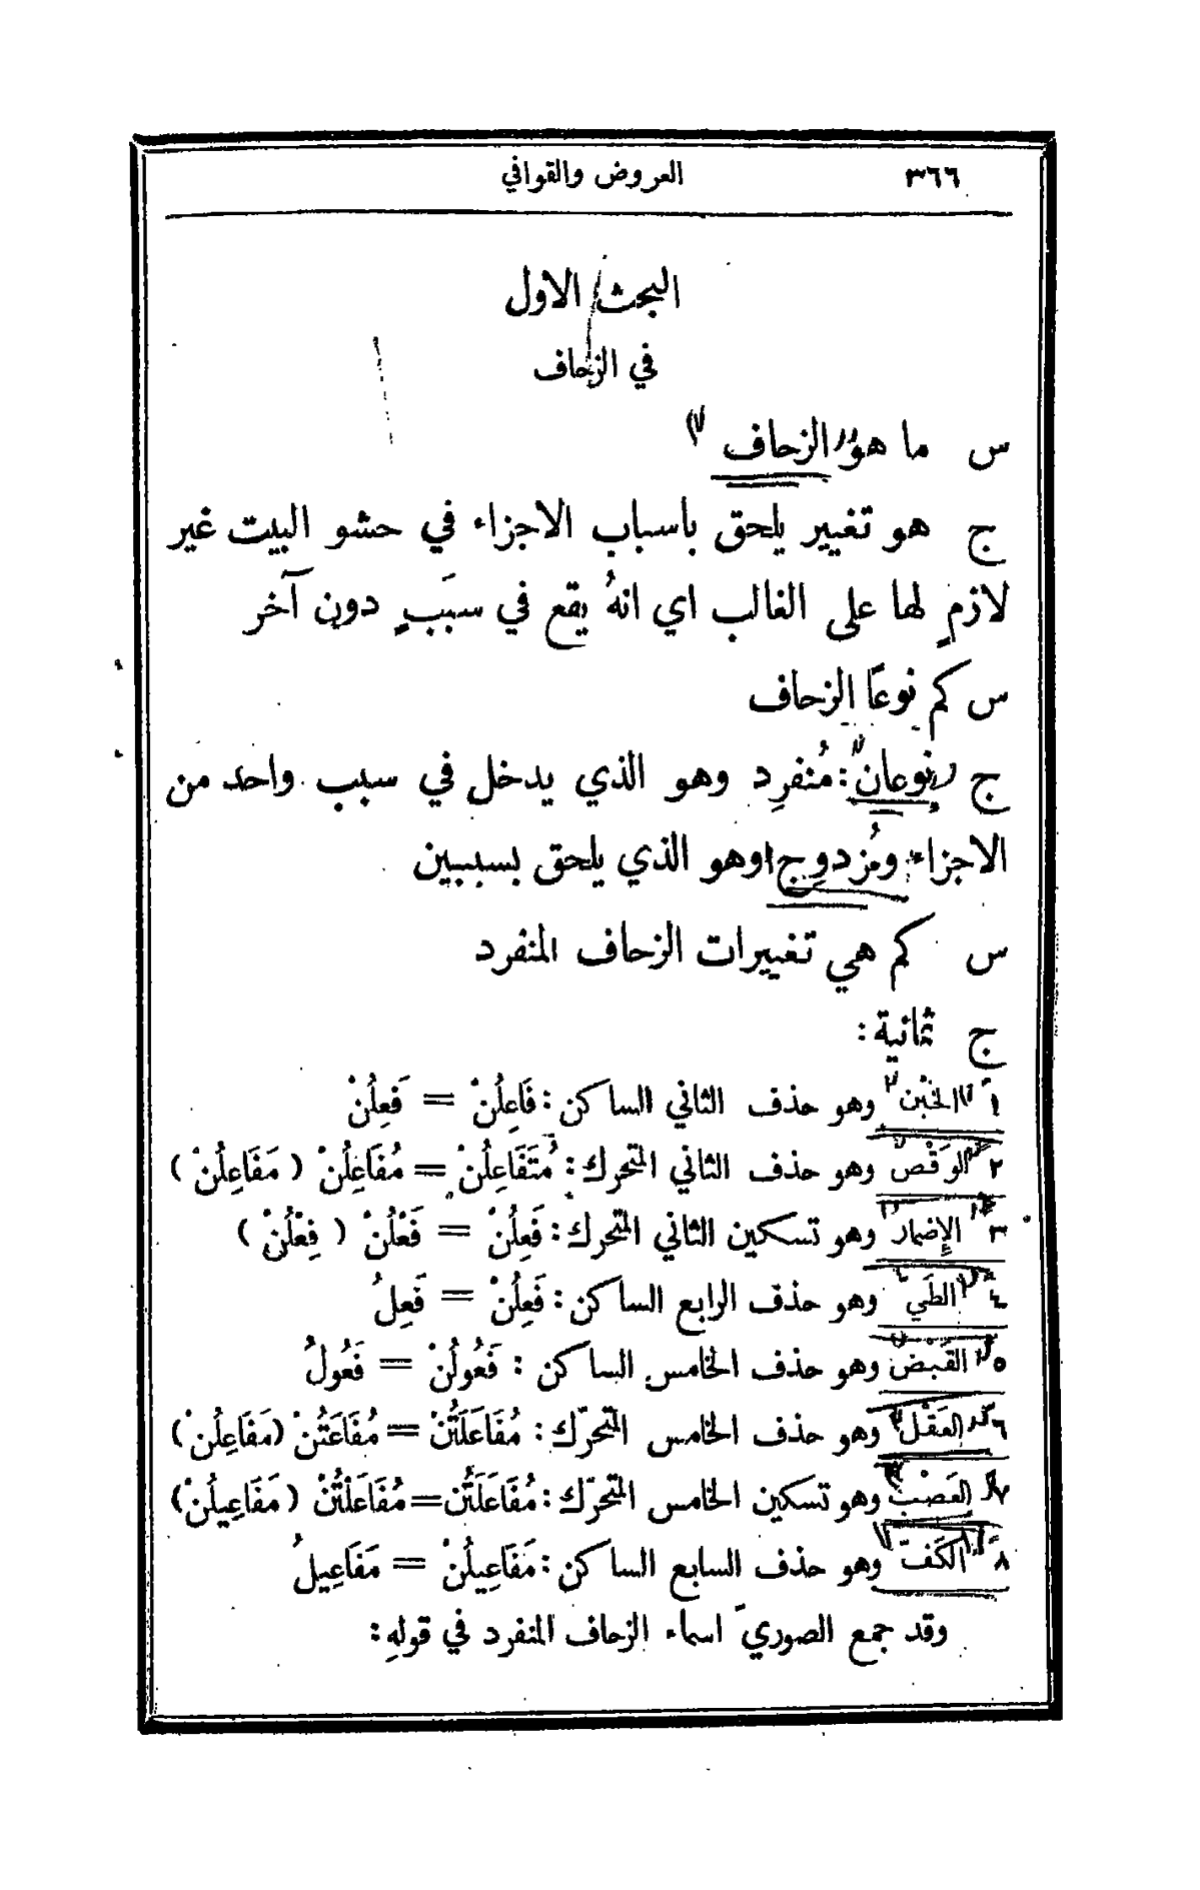 ٣٦٦ العروض والقوافي
البحث الاول
في الزحاف
س ما هو الزحاف
ج هو تغيير يلحق باسباب الاجزاء في حشو البيت غير
لازمٍ لها على الغالب اي انهُ يقع في سبَبٍ دون آخر
س كم نوعًا الزحاف
ج نوعان: مُنفرِد وهو الذي يدخل في سبب واحد من
الاجزاء ومُزدوِج وهو الذي يلحق بسببين
س كم هي تغييرات الزحاف المنفرد
ج ثمانية:
١ الخَبْن وهو حذف الثاني الساكن: فَاعِلُنْ = فَعِلُنْ
٢ الوَقْص وهو حذف الثاني المتحرك: مُتَفَاعِلُنْ = مُفَاعِلُنْ (مَفَاعِلُنْ)
٣ الإِضمار وهو تسكين الثاني المتحرك: فَعِلُنْ = فَعْلُنْ (فِعْلُنْ)
٤ الطَي وهو حذف الرابع الساكن: فَعِلُنْ = فَعِلُ
٥ القَبْض وهو حذف الخامس الساكن: فَعُولُنْ = فَعُولُ
٦ العَقْل وهو حذف الخامس المتحرّك: مُفَاعَلَتُنْ = مُفَاعَتُنْ (مَفَاعِلُنْ)
٧ العَصْب وهو تسكين الخامس المتحرّك: مُفَاعَلَتُن = مُفَاعَلْتُنْ (مَفَاعِيلُنْ)
٨ الكَفّ وهو حذف السابع الساكن: مَفَاعِيلُنْ = مَفَاعِيلُ
وقد جمع الصوري اسماء الزحاف المنفرد في قولهِ: